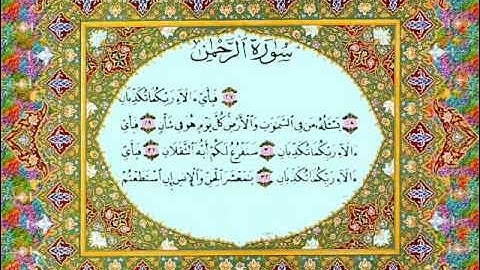 سُورَةُ الرَّحْمَٰن
٢٧ فَبِأَيِّ ءَالَآءِ رَبِّكُمَا تُكَذِّبَانِ
٢٨ يَسْـَٔلُهُۥ مَن فِى ٱلسَّمَٰوَٰتِ وَٱلْأَرْضِ كُلَّ يَوْمٍ هُوَ فِى شَأْنٍ ٢٩ فَبِأَيِّ
ءَالَآءِ رَبِّكُمَا تُكَذِّبَانِ ٣٠ سَنَفْرُغُ لَكُمْ أَيُّهَ ٱلثَّقَلَانِ ٣١ فَبِأَيِّ
ءَالَآءِ رَبِّكُمَا تُكَذِّبَانِ ٣٢ يَٰمَعْشَرَ ٱلْجِنِّ وَٱلْإِنسِ إِنِ ٱسْتَطَعْتُمْ